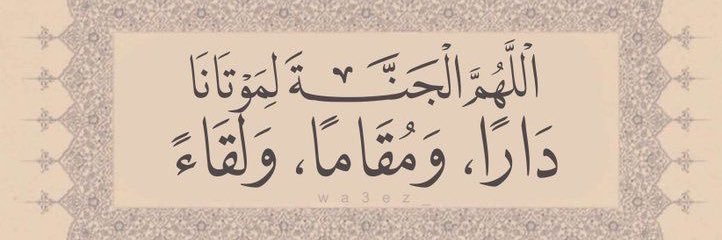 اَلْلَّهُمَّ الْجَنَّةَ لِمَوْتَانَا
دَارًا، وَمُقَامًا، وَلِقَاءً
wa3ez_